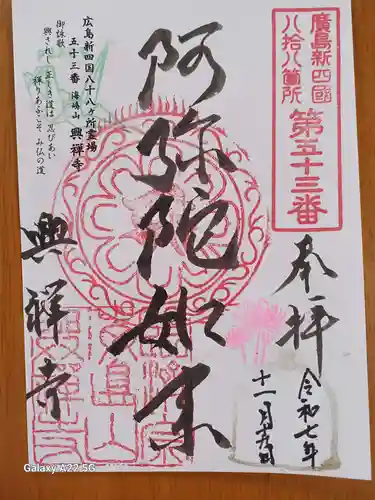 廣島新四國
八拾八箇所
第五十三番
奉拝
令和七年
阿弥陀如来
広島新四国八十八ヶ所霊場
五十三番 海嶋山 興禅寺
御詠歌
興されし 正しき道は 忍びあい
祥りあふこそ み仏の道
興禅寺
Galaxy A22 5G